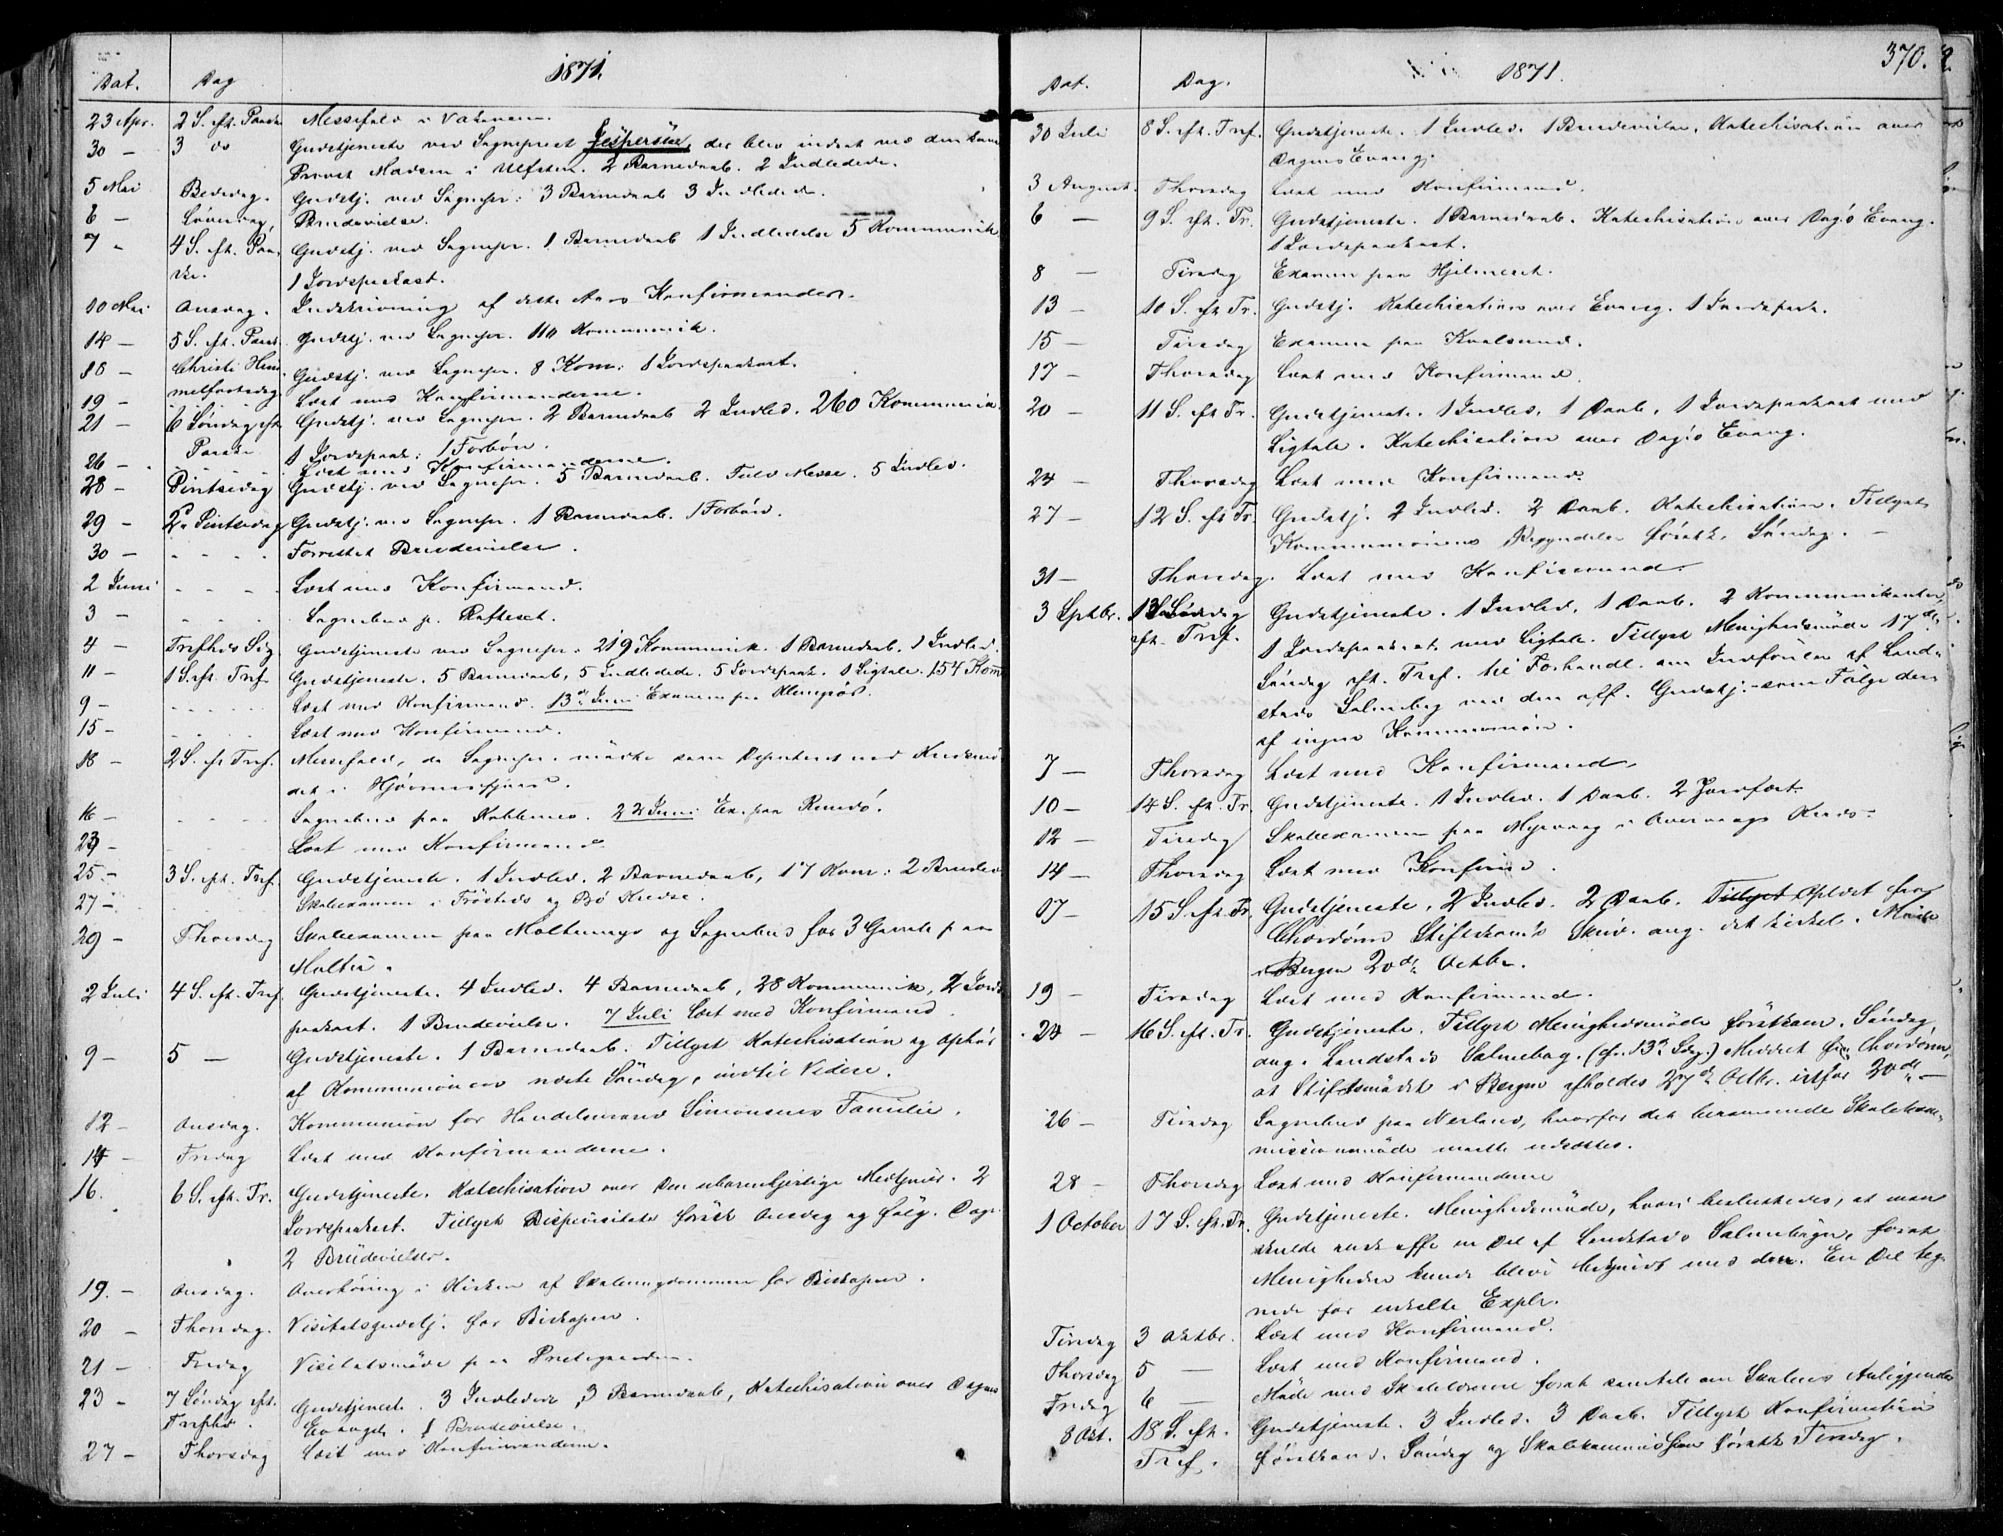 1871.
Dat. Dag
23 Apr. 2 S. eft. Paaske Messefald i Vakancen.
30 — 3 do Gudstjeneste ved Sogneprest Jespersen, der blev indsat ved den konst.
Provst Madsen i Ulfsten. 2 Barnedaab. 2 Indledede.
5 Mai Bededag. Gudstj. ved Sognepr: 3 Barnedaab 3 Indledede.
6 — Løverdag Brudevielse.
7 - 4 S. eft. Paa- Gudstj. ved Sognepr. 1 Barnedaab 1 Indledelse 5 Kommunik.
ske. 1 Jordspaakast.
10 Mai Onsdag. Indskrivning af dette Aars Konfirmander.
14 — 5 S. eft. Paask. Gudstj. ved Sognepr. 110 Kommunik.
18 — Christi Him- Gudstj. ved Sognepr. 8 Kom: 1 Jordspaakast.
melfartsdag
19 — Læst med Konfirmanderne.
21 — 6 Søndag eft. Gudstj. ved Sognepr. 2 Barnedaab 2 Indled. 260 Kommunik.
Paaske 1 Jordspaak: 1 Forbøn.
26 — Læst med Konfirmanderne.
28 — Pintsedag Gudstj. ved Sognepr. 5 Barnedaab. Fuld Messe. 5 Indled.
29 - 2n Pintsedag Gudstj. ved Sognepr. 1 Barnedaab. 1 Forbøn.
30 — - - - - Forrettet Brudevielse.
2 Juni - - - - Læst med Konfirmand.
3 — Sognebud p. Rafteset.
4 — Trefhds Sdg. Gudstjeneste ved Sognepr. 219 Kommunik. 1 Barnedaab. 1 Indled.
11 — 1 S. eft. Tref. Gudstjeneste. 5 Barnedaab, 5 Indledede. 5 Jordspaak. 1 Ligtale. 154 Kom
9 — Læst med Konfirmand. 13de Juni Examen paa Flemsøs.
15 — Læst med Konfirmand.
18 — 2 S. ef Tref. Messefald, da Sognepr. mødte som Deputeret ved Kredsmø
det i Hjørensfjord.
16 — Sognebud paa Koblenes. 22 Juni Ex. paa Remdø.
23 — Læst med Konfirmand
25. — 3 S. eft. Tref. Gudstjeneste. 1 Indled. 2 Barnedaab, 17 Kom: 2 Brudev
27 — Skoleexamen i Frøstads og Bø Kredse.
29 — Thorsdag Skoleexamen paa Moltumyr og Sognebud for 3 Gamle paa
Moltu.
2 Juli 4 S. eft. Tref. Gudstjeneste. 4 Indled. 4 Barnedaab, 28 Kommunik, 2 Jords
paakast. 1 Brudevielse. 7 Juli læst med Konfirmand.
9 — 5 — Gudstjeneste. 1 Barnedaab. Tillyst Katechisation og Ophør
af Kommunionen næste Søndag, indtil Videre.
12 — Onsdag. Kommunion for Handelsmand Simonsens Familie.
14 — Fredag Læst med Konfirmanderne.
16. 6 S. eft. Tr. Gudstjeneste. Katechisation over den ubarmhjertige Medtjener. 2
Jordspaakast. Tillyst Bispevisitats førstk Onsdag og følg. Dage.
2 Brudevielser.
19. — Onsdag. Overhøring i Kirken af Skoleungdommen for Biskopen.
20 — Thorsdag. Visitatsgudstj. for Biskopen.
21 — Fredag Visitatsmøde paa Prestegaarden.
23 — 7 Søndag eft. Gudstjeneste. 3 Indledede, 3 Barnedaab, Katechisation over Dagens
Trefhd. Evangel. 1 Brudevielse.
27 — Thorsdag Læst med Konfirmanderne.
1871. 370.
Dat. Dag.
30 Juli 8 S. eft. Tref. Gudstjeneste. 1 Indled. 1 Brudevielse, Katechisation over
Dagens Evang.
3 August. Thorsdag Læst med Konfirmand.
6 — 9 S. eft. Tr. Gudstjeneste. 1 Barnedaab. Katechisation over Dag's Evang.
1 Jordspaakast.
8 — Tirsdag Examen paa Hjelmeset.
13 — 10 S. eft Tr. Gudstj. Katechisation over Evang. 1 Jordspaak.
15 — Tirsdag Examen paa Kvalsund.
17 — Thorsdag Læst med Konfirmand.
20 — 11 S. eft Tr. Gudstjeneste. 1 Indled. 1 Daab, 1 Jordspaakast med
Ligtale. Katechisation over Dag's Evang.
24 — Thorsdag Læst med Konfirmand
27 — 12 S. eft Tr. Gudstj. 2 Indled. 2 Daab. Katechisation. Tillyst
Kommunionens Begyndelse førstk. Søndag. —
31 — Thorsdag. Læst med Konfirmand.
3 Sptbr. 13 Søndag Gudstjeneste. 1 Indled. 1 Daab. 2 Kommunikanter.
eft. Tref. 1 Jordspaakast med Ligtale. Tillyst Menighedsmøde 17de
Søndag eft. Tref. til Forhandl. om Indførelse af Land-
stads Salmebog ved den off. Gudstj. — som Følge der-
af ingen Kommunion.
7 — Thorsdag Læst med Konfirmand.
10 — 14 S. eft. Tr. Gudstjeneste. 1 Indled. 1 Daab. 2 Jordfæst.
12 — Tirsdag Skoleexamen paa Myrvaag i Overvaags Kreds.
14 — Thorsdag Læst med Konfirm.
17 — 15 S. eft. Tr. Gudstjeneste, 2 Indled. 2 Daab. Tillyst Oplæst fra
Choedøren Stiftskomite's Skriv. ang. det kirkel. Møde
i Bergen 20de Octbr.
19 — Tirsdag Læst med Konfirmand.
24 — 16 S. eft. Tr. Gudstjeneste. Tillyst Menighedsmøde førstkom. Søndag
ang. Landstads Salmebog. (cfr. 13n Sdg.) Meddelt fra Chordøren,
at Stiftsmødet i Bergen afholdes 27de Octbr. istfor 20de —
26 — Tirsdag Sognebud paa Nerland, hvorfor det berammede Skolekom-
missionsmøde maatte udsættes.
28 — Thorsdag Læst med Konfirmanderne
1 October 17 S. eft. Tr. Gudstjeneste. Menighedsmøde, hvori besluttedes, at man
skulde anskaffe en Del af Landstads Salmebøger, forat
Menigheden kunde blive bekjendt med den. En Del teg-
nede for enkelte Expl.
Tirsdag 3 Oktbr. Læst med Konfirmand.
Thorsdag 5 — Læst med Konfirmand.
Fredag 6 — Møde med Skolelærerne forat samtale om Skolens Anliggender
8 Okt. 18 S. eft. Gudstjeneste. 3 Indled. 3 Daab. Tillyst Konfirmation
Tref. førstkomd. Søndag og Skolekommission førstk Tirsdag.